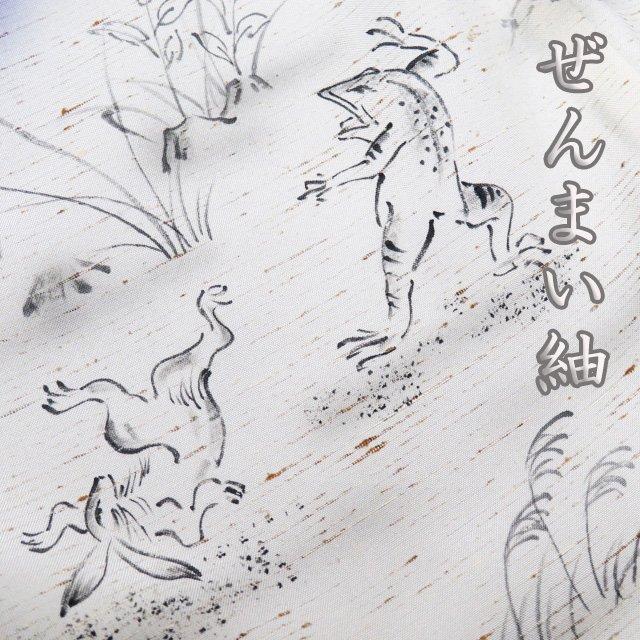 ぜんまい紬